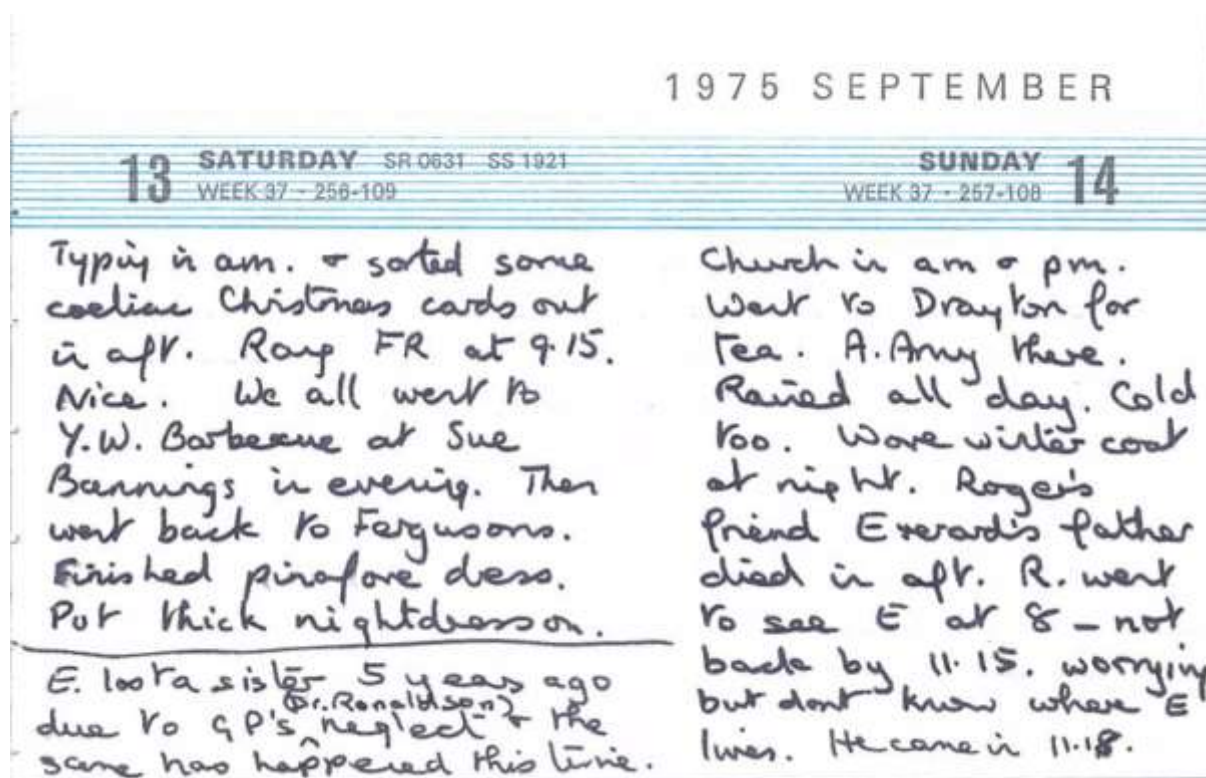 1975 SEPTEMBER
13 SATURDAY SR 0631 SS 1921
WEEK 37 · 256-109
Typing in am. & sorted some
coeliac Christmas cards out
in aft. Rang FR at 9.15.
Nice. We all went to
Y.W. Barbecue at Sue
Bannings in evening. Then
went back to Fergusons.
Finished pinafore dress.
Put thick nightdress on.
E. lost a sister 5 years ago
(Dr. Ronaldson)
due to GP's neglect & the
same has happened this time.
SUNDAY 14
WEEK 37 · 257-108
Church in am & pm.
Went to Drayton for
Tea. A. Amy there.
Rained all day. Cold
too. Wore winter coat
at night. Roger's
friend Everard's father
died in aft. R. went
to see E at 8 – not
back by 11.15. worrying
but dont know where E
lives. He came in 11.18.